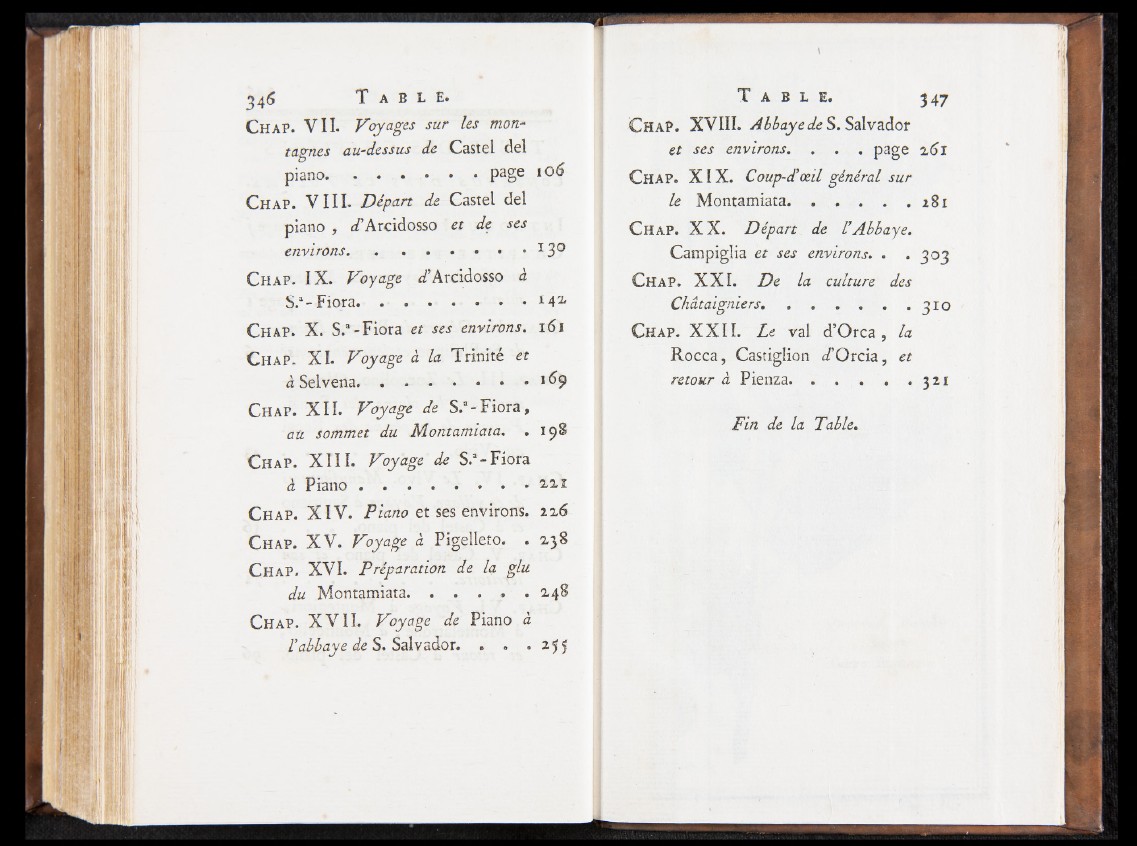 346 TABLE.
CHAP. VII. Voyages sur les mon-
tagnes au-dessus de Castel del
piano. . . . . . . page 106
CHAP. VIII. Départ de Castel del
piano , d'Arcidosso et de ses
environs. . . . . . . . 130
CHAP. IX. Voyage d'Arcidosso à
S.ª - Fiora. . . . . . . . 142
CHAP. X. S.ª - Fiora et ses environs. 161
CHAP. XI. Voyage à la Trinité et
à Selvena. . . . . . . . 169
CHAP. XII. Voyage de S.ª - Fiora,
au sommet du Montamiata. . 198
CHAP. XIII. Voyage de S.ª - Fiora
à Piano . . . . . . . . 221
CHAP. XIV. Piano et ses environs. 226
CHAP. XV. Voyage à Pigelleto. . 238
CHAP. XVI. Préparation de la glu
du Montamiata. . . . . . 248
CHAP. XVII. Voyage de Piano à
l'abbaye de S. Salvador. . . . 255
TABLE. 347
CHAP. XVIII. Abbaye de S. Salvador
et ses environs. . . . page 261
CHAP. XIX. Coup-d'œil général sur
le Montamiata. . . . . . 281
CHAP. XX. Départ de l'Abbaye.
Campiglia et ses environs. . . 303
CHAP. XXI. De la culture des
Châtaigniers. . . . . . . 310
CHAP. XXII. Le val d'Orca , la
Rocca, Castiglion d'Orcia, et
retour à Pienza. . . . . . 321
Fin de la Table.